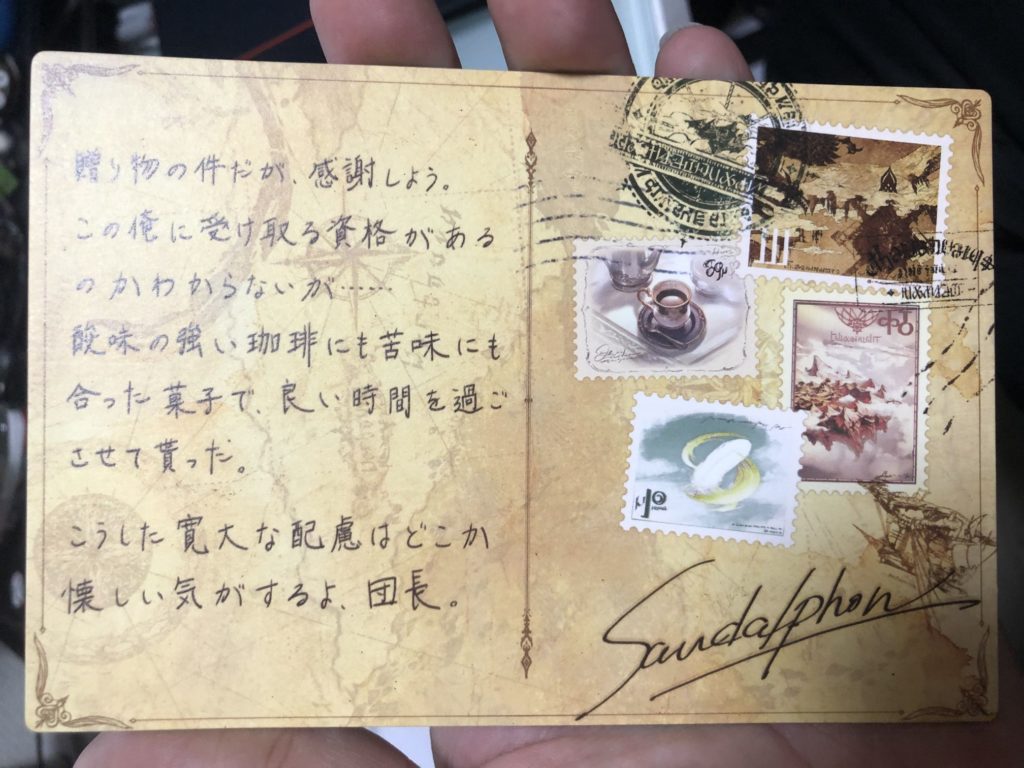 贈り物の件だが、感謝しよう。
この俺に受け取る資格がある
のかわからないが……
酸味の強い珈琲にも苦味にも
合った菓子で、良い時間を過ご
させて貰った。
こうした寛大な配慮はどこか
懐しい気がするよ、団長。
Sandalphon